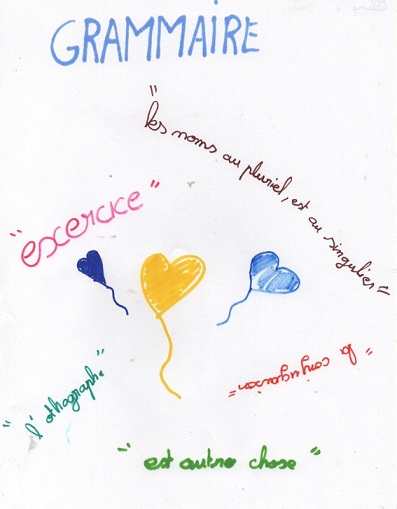 GRAMMAIRE
"les noms au pluriel, est au singulier"
"exercice"
"la conjugaison"
"l'othographe"
"est autre chose"